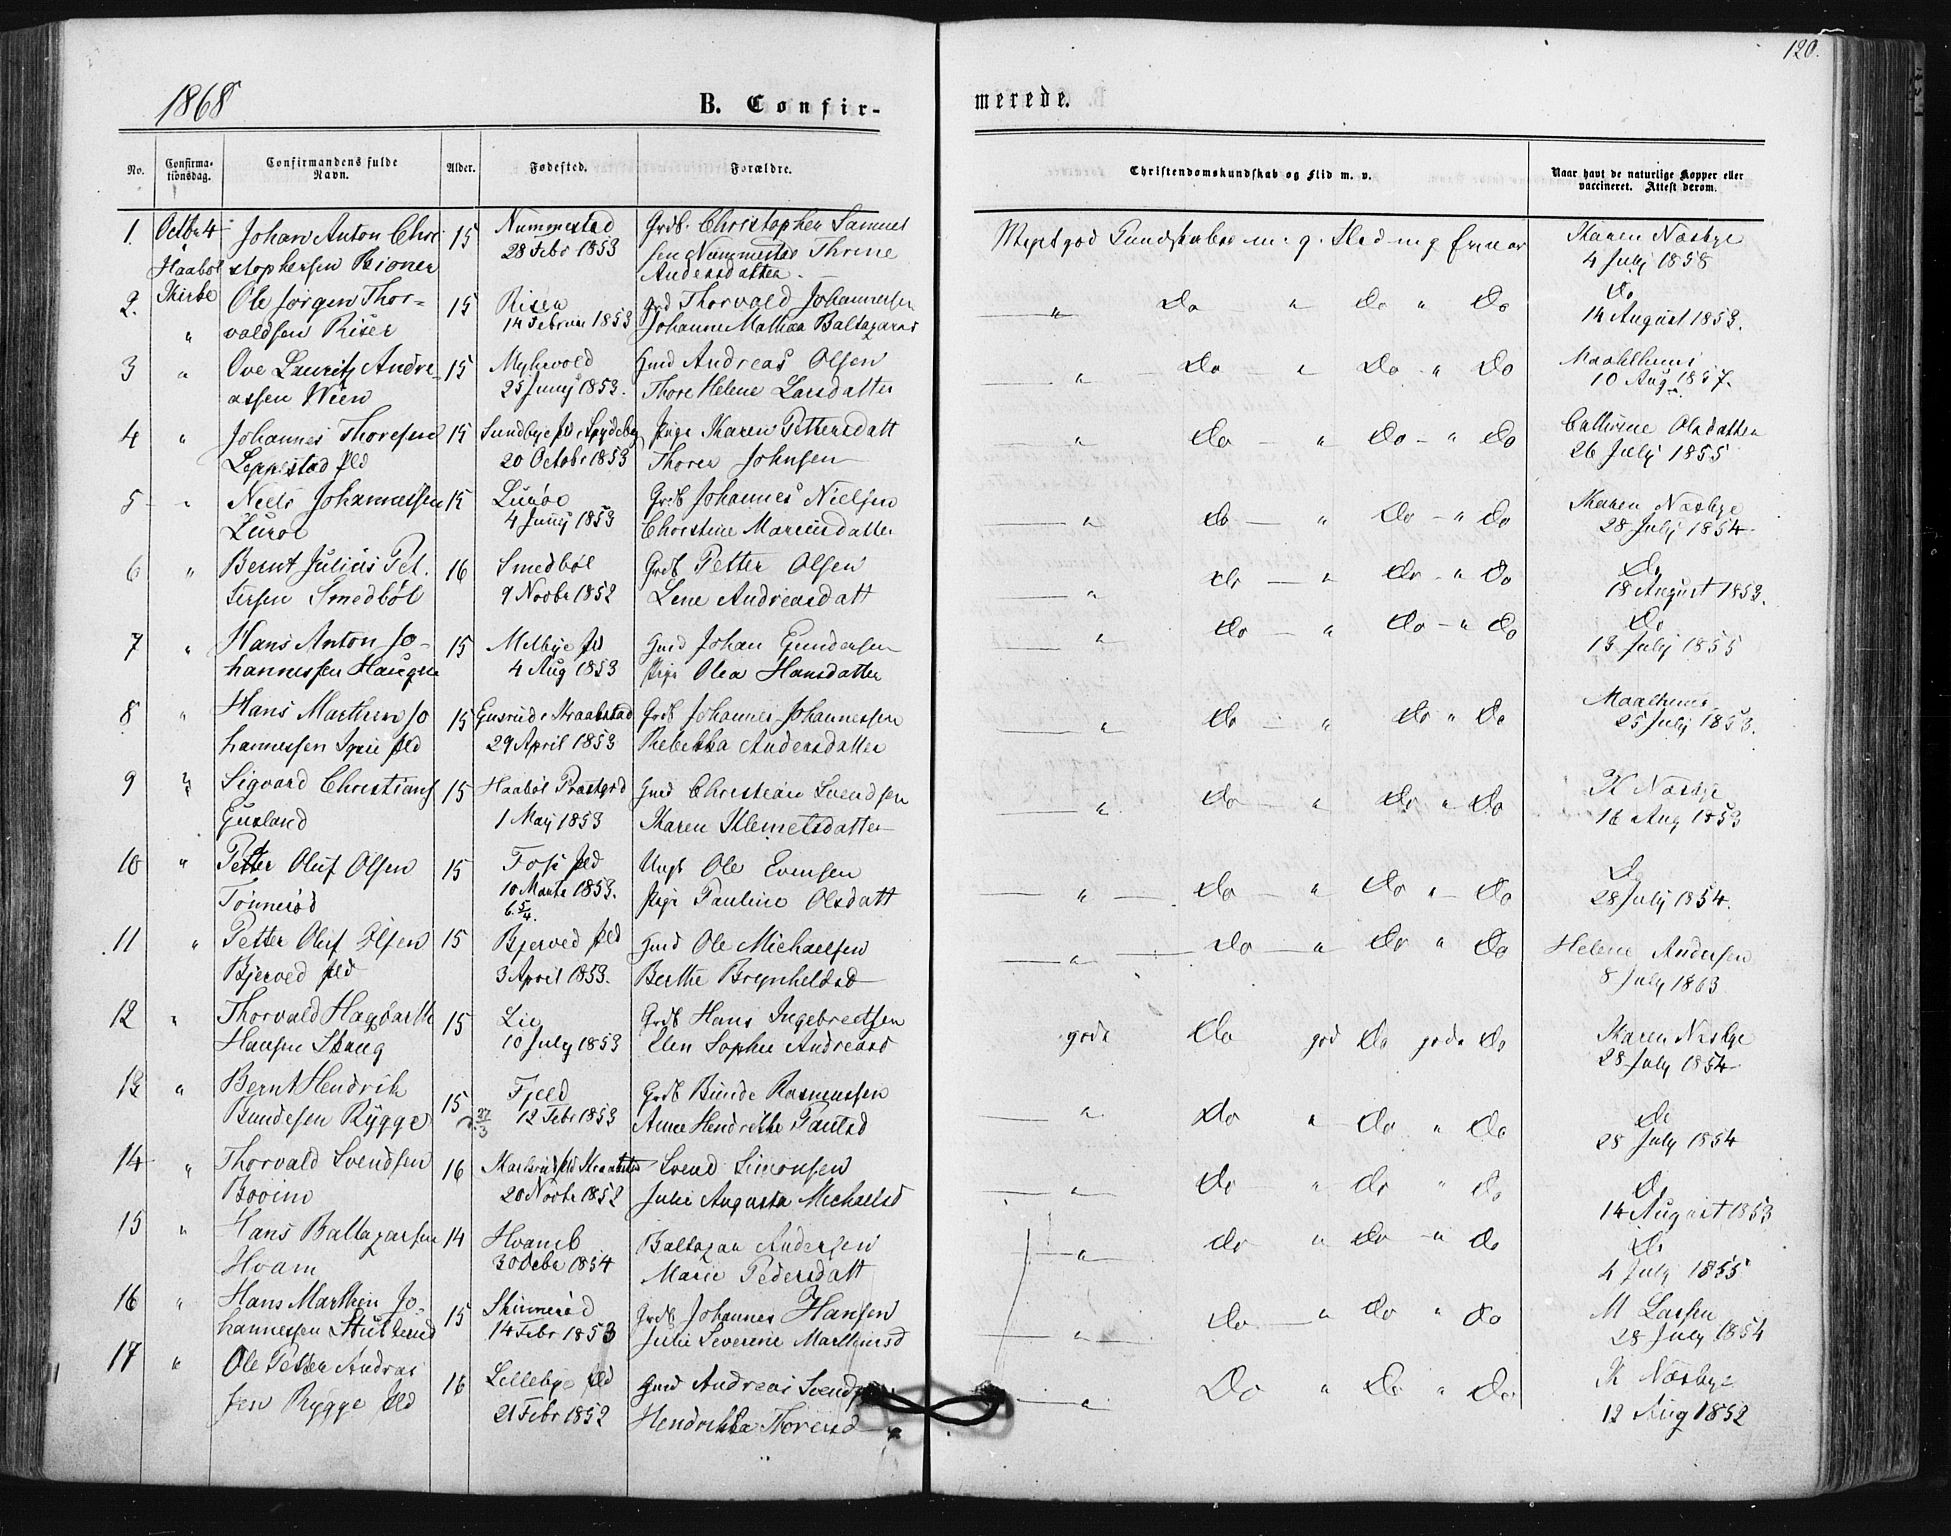 120.
1868
B. Confir-
merede.
No.
Confirma-
tionsdag.
Confirmandens fulde
Navn.
Alder.
Fødested.
Forældre.
Christendomskundskab og Flid m. v.
Naar havt de naturlige Kopper eller
vaccineret. Attest derom.
1. Octbr 4 Johan Anton Chri 15 Nummestad Grdb. Christopher Samuel Meget god Kundskaber m. g. Flid m g
Haabøl stophersen 28 Febr 1853 sen Nummestad Thrine
Kirke Andersdatter.
Karen Næsbye
4 July 1858
2. " Ole Jørgen Thor- 15 Risen Grd Thorvald Johannesen " Do " Do " Do
valdsen Riser 14 Februar 1853 Johanne Mathea Baltazars
Do
14 August 1853.
3 " Ove Lauritz Andre 15 Myhrvold Gmd Andreas Olsen " Do " Do " Do
assen Wien 25 Junij 1853. Thore Helene Larsdatter
10 Aug 1857.
4 " Johannes Thoresen 15 Sundbye pld i Spydeberg Pige Karen Pettersdatt " Do " Do " Do
Leppestad pld 20 Octobr 1853 Thorer Johnsen
Cathrine Olsdatter
26 July 1855
5 " Niels Johannessen 15 Lurøe Grdb Johannes Nielsen " Do " Do " Do
Lurøe 4 Junij 1853 Christine Mariusdatter
Karen Næsbye
28 July 1854
6 " Bernt Julius Pet. 16 Smedbøl Grdb Petter Olsen " Do " Do " Do
tersen Smedbøl 9 Novbr 1852 Lene Andreasdatt
Do
18 August 1853.
7 " Hans Anton Jo- 15 Melbye pld Gmd Johan Gundersen " Do " Do " Do
hannessen Haugen 4 Aug 1853 Pige Olea Hansdatter
Do
13 July 1855
8 " Hans Marthin Jo 15 Gusrud i Kraakstad Grdb Johannes Johannessen " Do " Do " Do
hannessen pld 29 April 1853 Rebekka Andersdatter
25 July 1853.
9 " Sigvard Christians 15 Haabøl Præstgrd Gmd Christian Svendsen " Do " Do " Do
Gusland 1 Maj 1853 Karen Klemetsdatter
K Næsbye
16 Aug 1853
10 " Petter Oluf Olsen 15 Foss pld Ungk Ole Evensen " Do " Do " Do
Tønnerød 10 Marts 1853. Pige Pauline Olsdatt
Do
28 July 1854.
11 " Petter Oluf Olsen 15 Bjerved pld Gmd Ole Michaelsen " Do " Do " Do
Bjerved pld 3 April 1853. Berthe Brynhelsd
Helene Andersen
8 July 1863
12 " Thorvald Hagbarth 15 Lie Grdb Hans Ingebretsen gode Do god Do gode Do
Hansen Skaug 10 July 1853 Elen Sophie Andreasd
Karen Næsbye
28 July 1854
13 " Bernt Hendrik 15 Fjeld Grdb Bunde Rasmussen " Do " Do " Do
Bundesen Rygge 12 Febr 1853 Anne Hendrikke Paulsd
Do
28 July 1854
14 " Thorvald Svendsen 16 Karlsrud pld Kraakstad Svend Simonsen " Do " Do " Do
Bovim 20 Novbr 1852 Julie Augusta Michaelsd
Do
14 August 1853
15 " Hans Baltazarsen 14 Hvam Baltazar Andersen " Do " Do " Do
Hvam 30 Decbr 1854 Marie Pedersdatt
Do
4 July 1855
16 " Hans Marthin Jo- 15 Skinnerød Grdb Johannes Hansen " Do " Do " Do
hannessen 14 Febr 1853 Julie Severine Marthinsd
M Larsen
28 July 1854
17 " Ole Petter Andreas 16 Lillebye pld Gmd Andreas Svends " Do " Do " Do
sen Rygge pld 21 Febr 1852 Hendrikka Thoresd
K Næsbye
12 Aug 1852